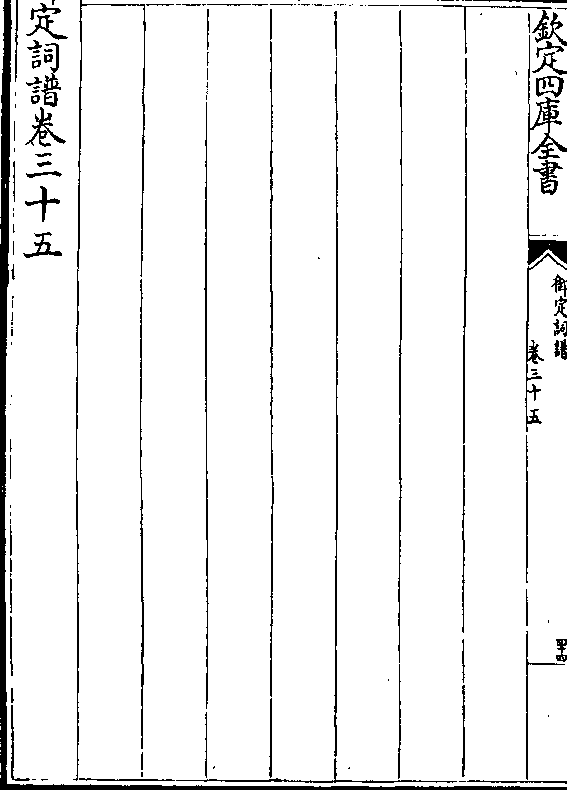 欽定四庫全書
御定詞譜
卷三十五
四十四
定詞譜卷三十五